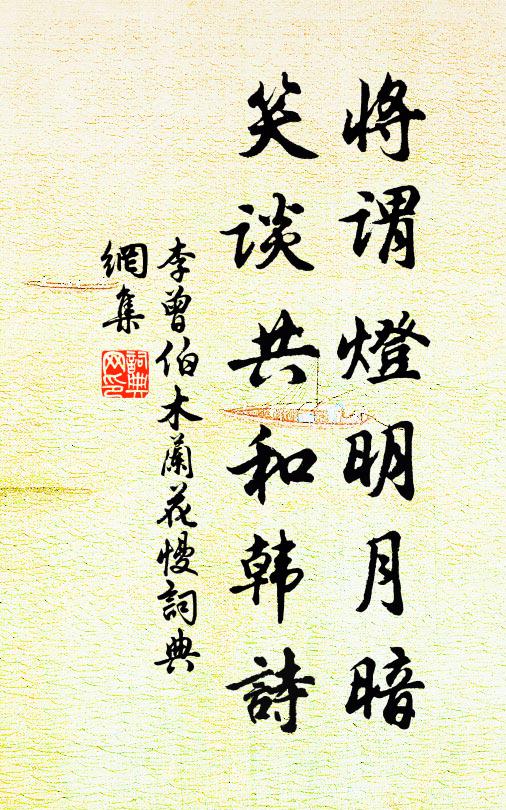 将谓燈明月暗
笑谈共和韩詩
李曾伯木蘭花慢詞典
網集
詞典
网印